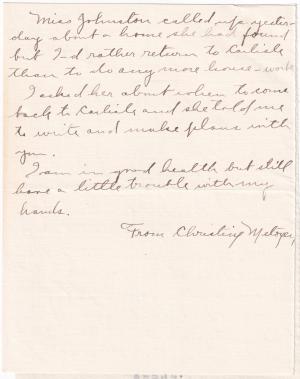 Miss Johnston called up yester-
day about a home she had found
but I'd rather return to Carlisle
than to do any more house-work
I asked her about when to come
back to Carlisle and she told me
to write and make plans with
you.
I am in good health but still
have a little trouble with my
hands.
From Christine Metoxen,